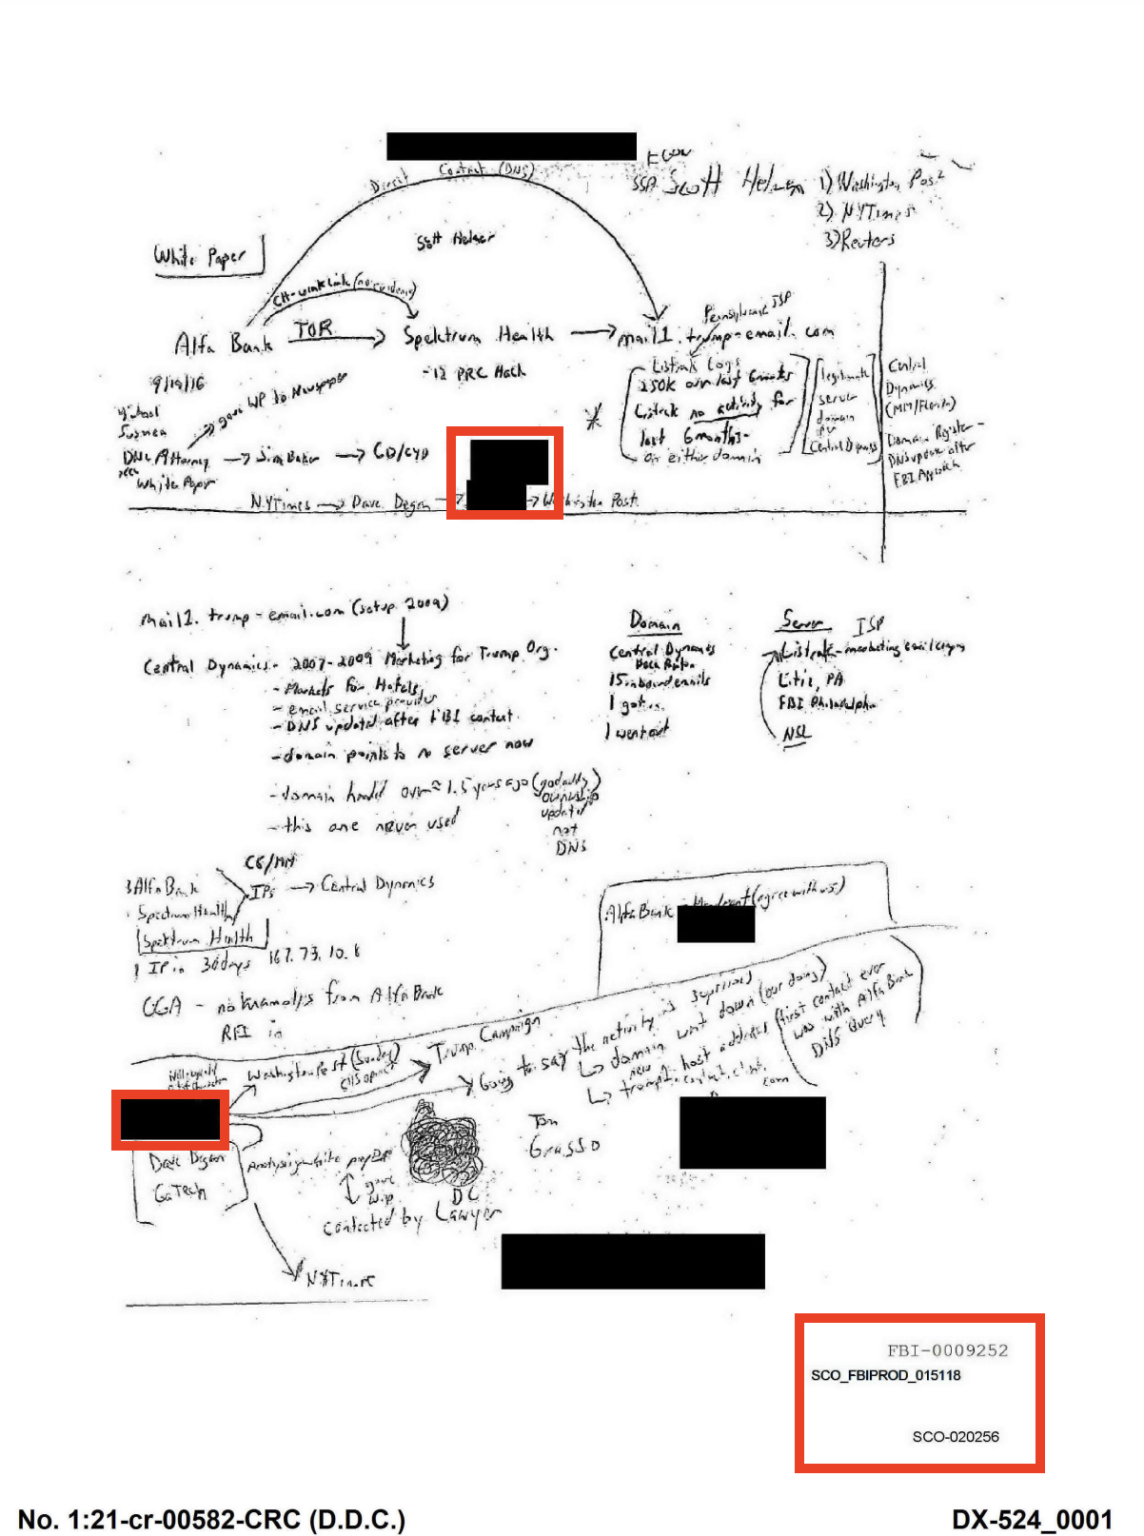 Direct Contact (DNS)
ECOU
SSA Scott Helman 1) Washington Post
2) NYTimes
3) Reuters
Scott Helman
White Paper
CH-winklink (no evidence)
Pennsylvania ISP
Alfa Bank TOR Spektrum Health mail1.trump-email.com
-12 PRC Hack
9/19/16
gave WP to Newspaper
Listrak Logs
250K over last 6 months
Listrak no activity for
last 6 months-
on either domain
legitimate
server
domain
for
Central Dynamics
Central
Dynamics
(MM/Florida)
Domain Register-
DNS update after
FBI Approach
Michael
Sussman
DNC Attorney → Jim Baker → CD/CYD
White Paper
NYTimes → Dave Degon → → Washington Post
mail1.trump-email.com (setup 2009)
Central Dynamics - 2007-2009 Marketing for Trump Org.
- Markets for Hotels
- email service provider
- DNS updated after FBI contact
- domain points to no server now
- domain handed over ≈ 1.5 years ago (godaddy)
ownership
updated
not
DNS
- this one never used
Domain
Central Dynamics
Boca Raton
15 inbound emails
1 got in
1 went out
Server ISP
Listrak - marketing email company
Litiz, PA
FBI Philadelphia
NSL
CG/MM
3 Alfa Bank
1 Spectrum Health
IPs → Central Dynamics
Spektrum Health
1 IP in 30 days 167.73.10.8
OGA - no knanalysis from Alfa Bank
RFI in
Alfa Bank - Mandiant (agree with us)
Washington Post (Sunday)
Trump Campaign
Going to say the activity is suspicious
↳ domain went down (our doing)
↳ new host address (first contact ever
was with Alfa Bank
DNS Query
trump1.contact-client.com
Dave Degon
GaTech
Analysis white paper
gave
W.P
DC
contacted by Lawyer
Tom
Grasso
NYTimes
FBI-0009252
SCO_FBIPROD_015118
SCO-020256
No. 1:21-cr-00582-CRC (D.D.C.)
DX-524_0001